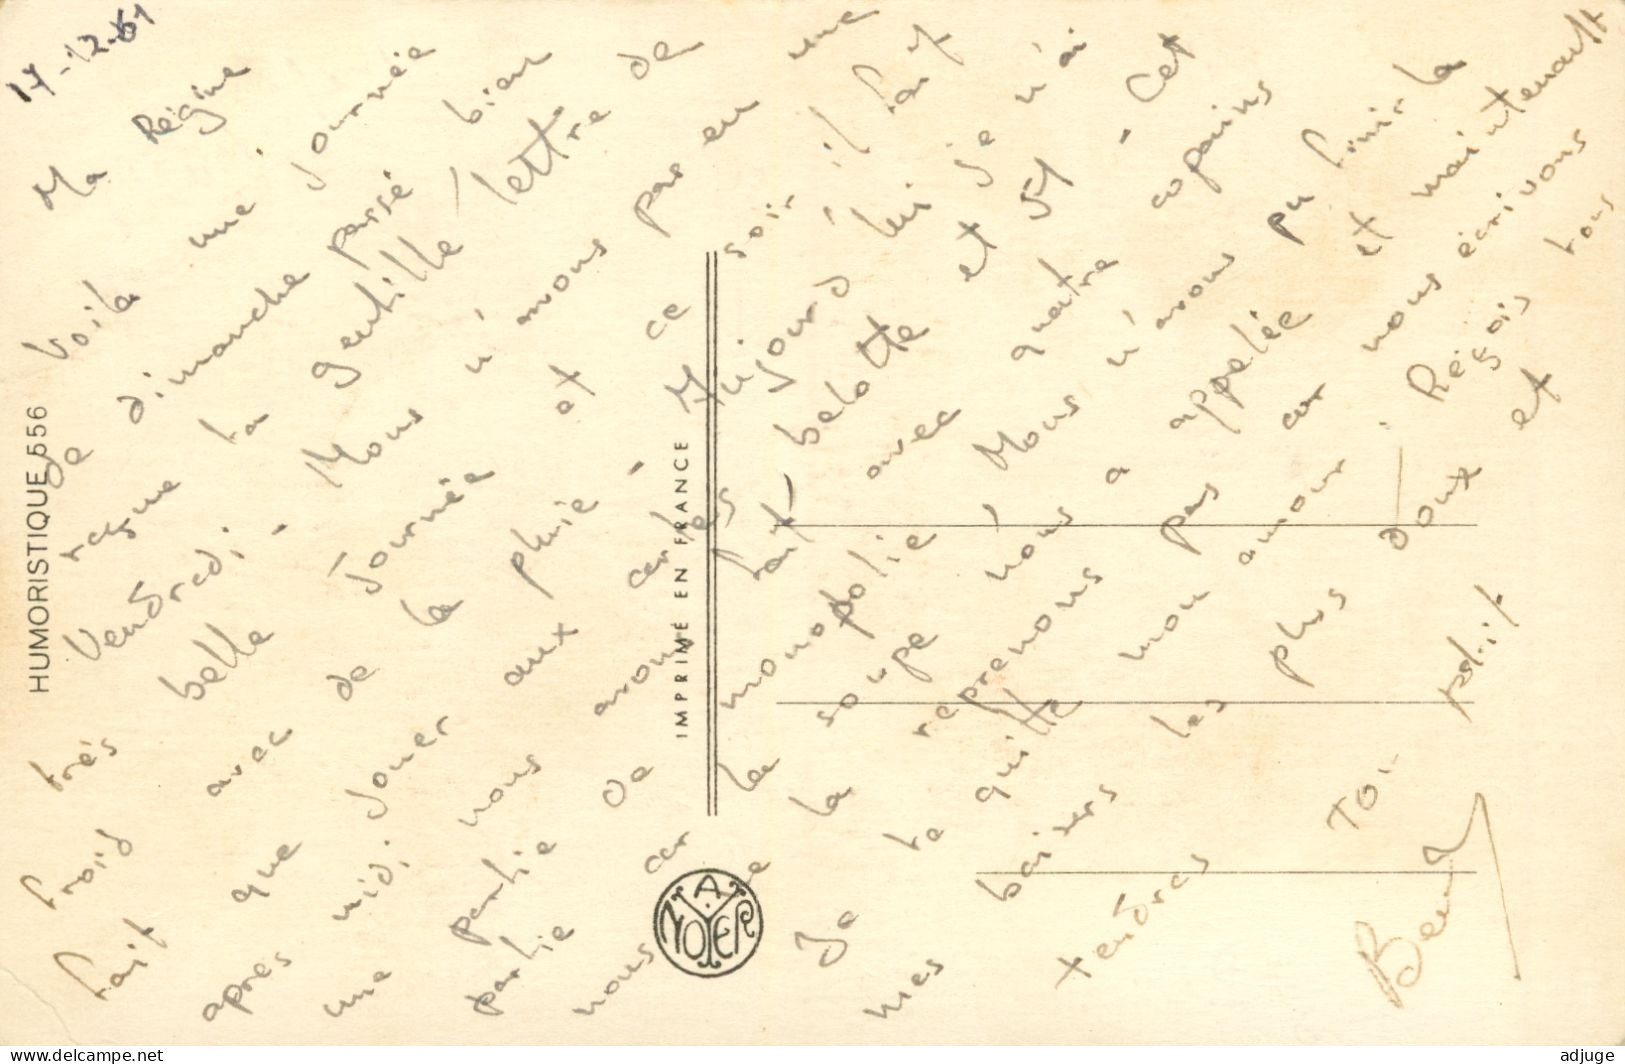 17-12-61
Ma Régine
Voila une journée
de dimanche passé bien
reçue ta gentille lettre de
Vendredi - Nous n'avons pas eu une
très belle journée et ce soir il fait
froid avec de la pluie - Aujourd'hui je n'ai
fait que jouer aux cartes belotte et 421 - Cet
apres midi nous avons fait avec quatre copains
une partie de monopolie Nous n'avons pu finir la
partie car la soupe nous a appelée et maintenant
nous ne la reprenons pas car nous écrivons
Je te quitte mon amour. Reçois tous
mes baisers les plus doux et
tendres
Ton petit
HUMORISTIQUE 556
IMPRIMÉ EN FRANCE
A. NOYER
delcampe.net
adjuge